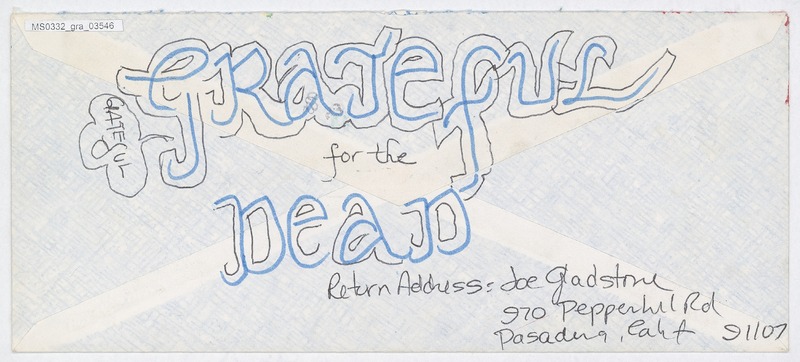 MS0332_gra_03546
GRATEFUL
for the
DEAD
Return Address: Joe Gladstone
970 Pepperhill Rd
Pasadena, Calif 91107